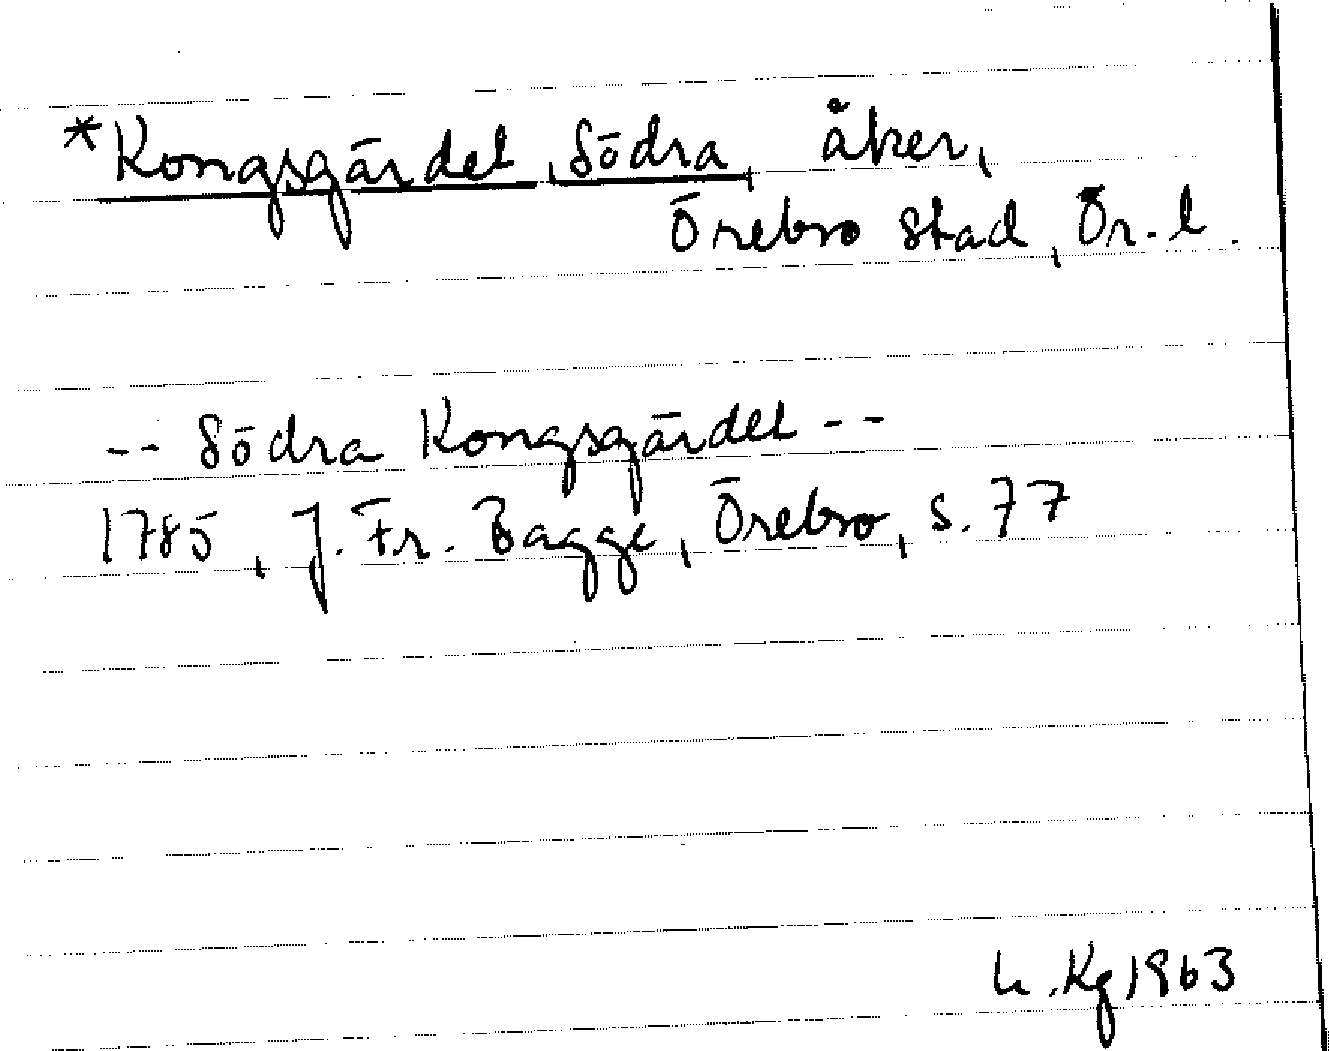 *Kongsgärdet, Södra, åker,
Örebro stad, Ör. l.
-- Södra Kongsgärdet --
1785, J. Fr. Bagge, Örebro, s. 77
Kg 1963